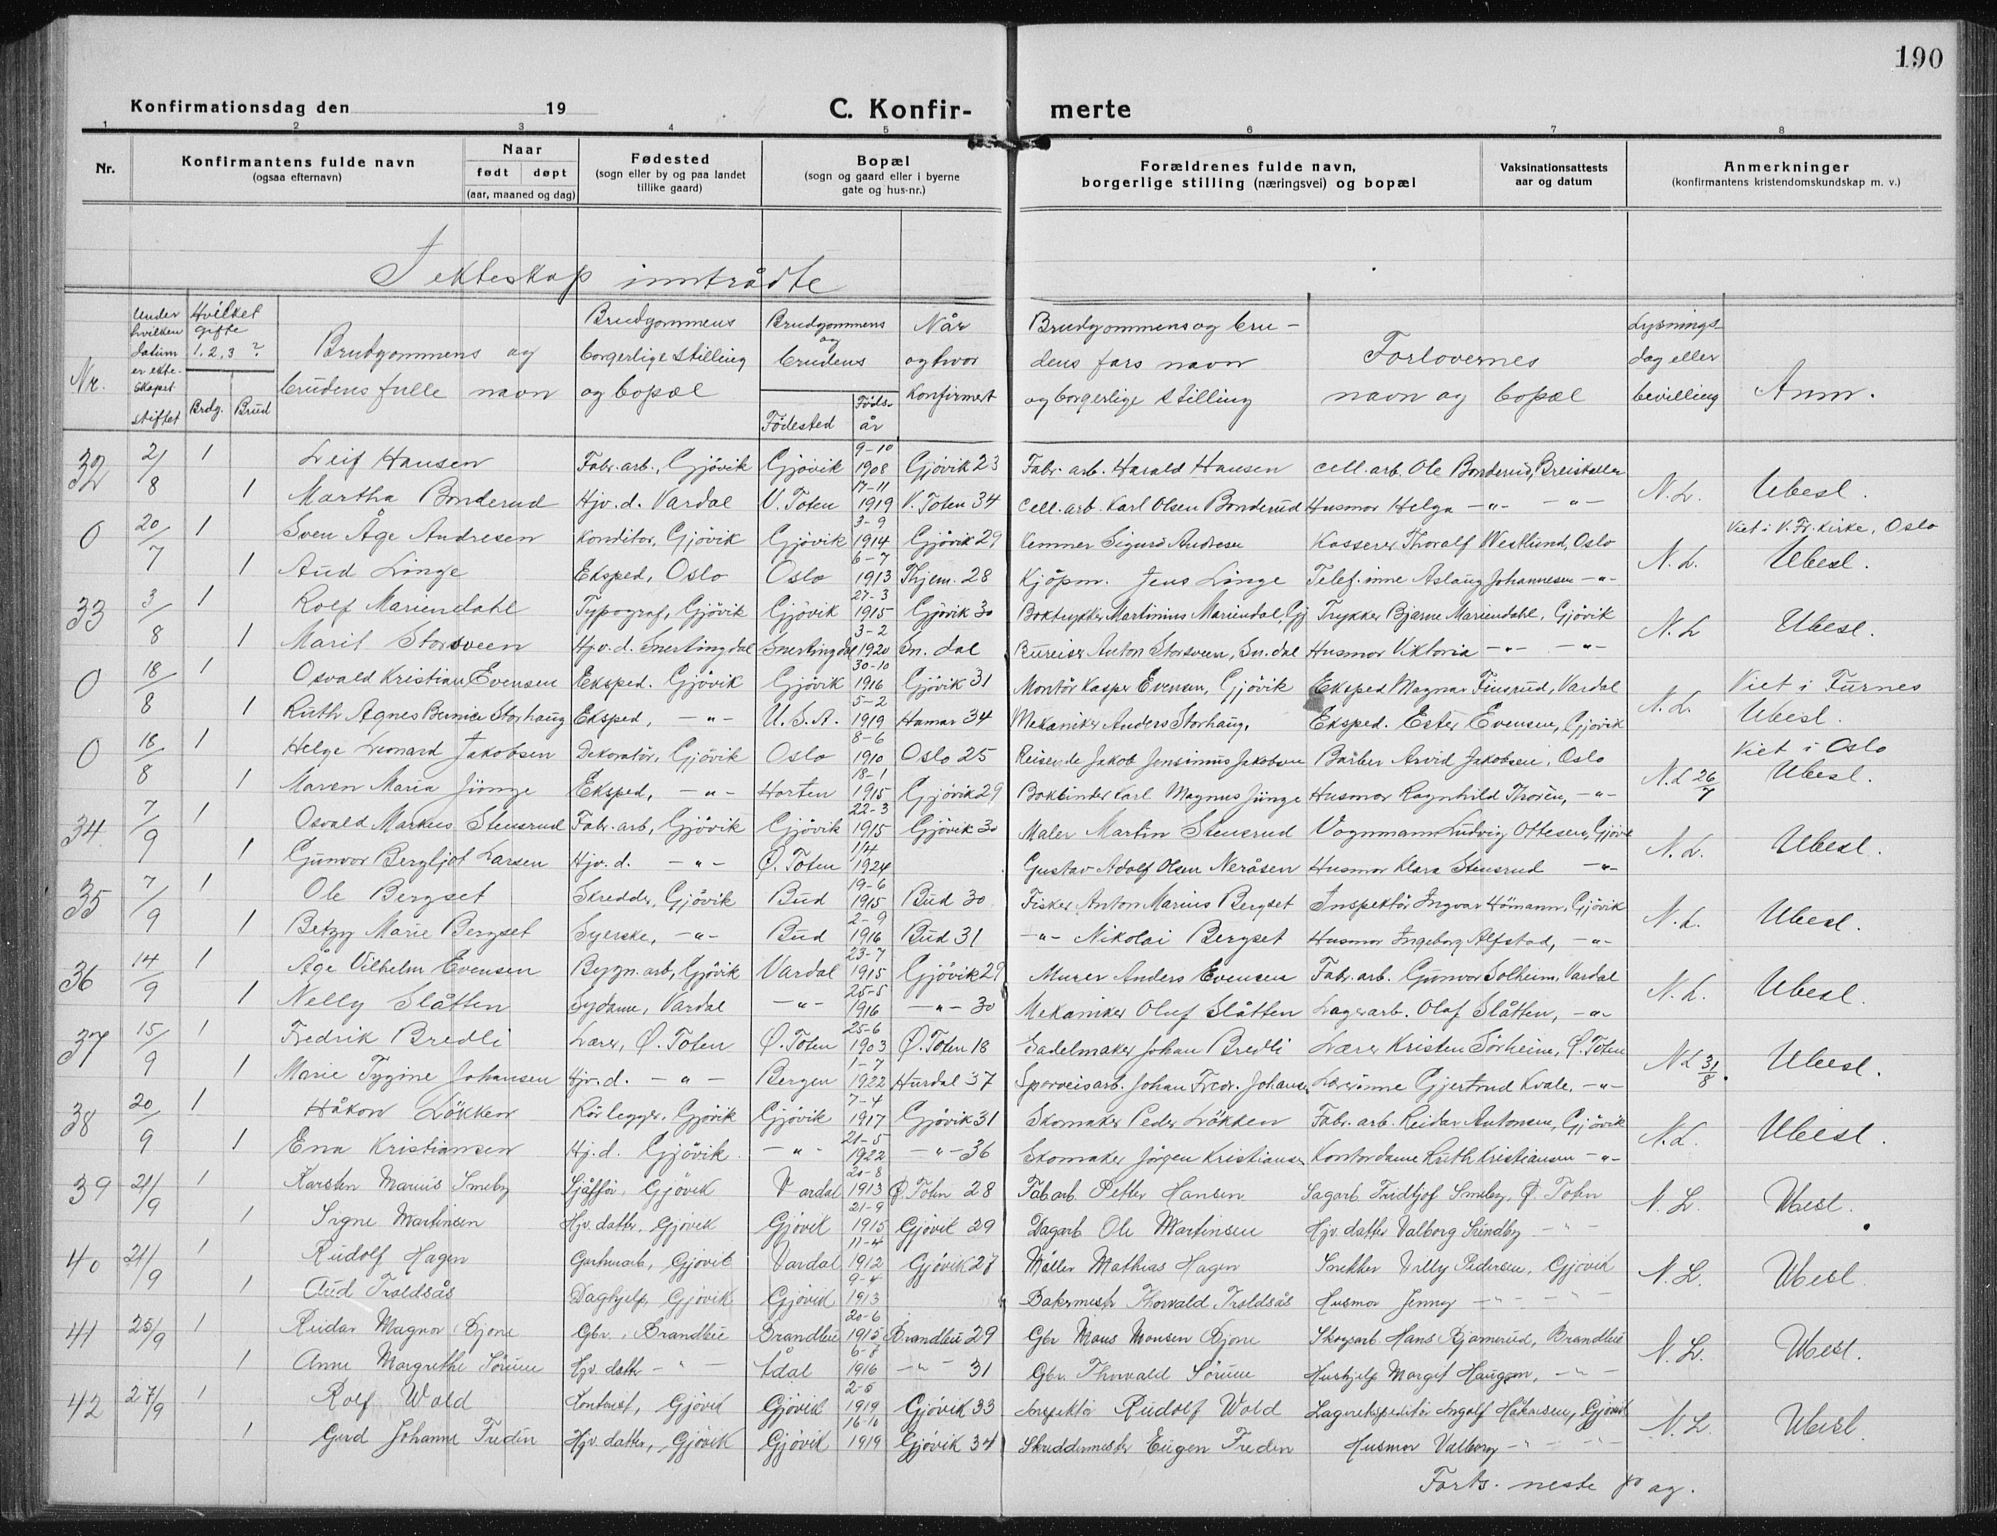 190
Konfirmationsdag den 19
C. Konfir- merte
1 2 3 4 5 6 7 8
Nr.
Konfirmantens fulde navn (ogsaa efternavn)
Naar født døpt (aar, maaned og dag)
Fødested (sogn eller by og paa landet tillike gaard)
Bopæl (sogn og gaard eller i byerne gate og hus-nr.)
Forældrenes fulde navn, borgerlige stilling (næringsvei) og bopæl
Vaksinationsattests aar og datum
Anmerkninger (konfirmantens kristendomskundskap m. v.)
I ekteskap inntrådte
Nr.
Under hvilken datum er ekteskapet stiftet
Hvilket gifte 1, 2, 3 ? Brdg. Brud
Brudgommens og brudens fulle navn
Brudgommens borgerlige stilling og bopæl
Brudgommens og brudens Fødested Føds. år
Når og hvor konfirmert
Brudgommens og bru- dens fars navn og borgerlige stilling
Forlovernes navn og bopæl
Lysnings- dag eller bevilling
Anm.
32 2/8 1 Leif Hansen Fabr. arb., Gjövik Gjövik 9-10 1908 Gjövik 23 Fabr. arb. Harald Hansen Cell. arb. Ole Bonderud, Breiskallen
1 Martha Bonderud Hjv. d. Vardal V. Toten 17-11 1919 V. Toten 34 Cell. arb. Karl Olsen Bonderud Husmor Helga -"- -"- N. L. Ubesl.
0 20/7 1 Sven Åge Andresen Konditor, Gjövik Gjövik 3-9 1914 Gjövik 29 Kemner Sigurd Andresen Kasserer Thoralf Westlund, Oslo Viet i V. Fr. Kirke, Oslo
1 Aud Linge Eksped, Oslo Oslo 6-7 1913 Thjem. 28 Kjöpm. Jens Linge Telef. inne Aslaug Johannesen -"- N. L. Ubesl.
33 3/8 1 Rolf Mariendahl Typograf, Gjövik Gjövik 27-3 1915 Gjövik 30 Boktrykker Martinius Mariendal, Gj Trykker Bjarne Mariendahl, Gjövik
1 Marit Storsveen Hjv. d. Snertingdal Snertingdal 3-2 1920 Sn. dal Bureiser Anton Storsveen, Sn. dal Husmor Viktoria -"- -"- N. L Ubesl.
0 18/8 1 Osvald Kristian Evensen Eksped. Gjövik Gjövik 30-10 1916 Gjövik 31 Montör Kasper Evensen, Gjövik Eksped Magnar Finsrud, Vardal Viet i Furnes
1 Ruth Agnes Bernice Storhaug Eksped, -"- U.S.A. 5-2 1919 Hamar 34 Mekaniker Anders Storhaug, Eksped. Ester Evensen, Gjövik N. L. Ubesl.
0 18/8 1 Helge Leonard Jakobsen Dekoratör, Gjövik Oslo 8-6 1910 Oslo 25 Reisende Jakob Jensinius Jakobsen Barber Arvid Jakobsen, Oslo Viet i Oslo
1 Maren Maria Jünge Eksped, -"- Horten 18-1 1915 Gjövik 29 Bokbinder Karl Magnus Jünge Husmor Ragnhild Thorén, -"- N. L 26/7 Ubesl.
34 7/9 1 Osvald Markus Stensrud Fabr. arb, Gjövik Gjövik 22-3 1915 Gjövik 30 Maler Martin Stensrud Vognmann Ludvig Ottesen, Gjövik
1 Gunvor Bergljot Larsen Hjv. d. -"- Ø. Toten 1/4 1924 Gustav Adolf Olsen Neråsen Husmor Klara Stensrud -"- N. L. Ubesl.
35 7/9 1 Ole Bergset Skredder, Gjövik Bud 19-6 1915 Bud 30 Fisker Anton Marius Bergset Inspektör Ingvar Hömann, Gjövik
1 Betzy Marie Bergset Syerske, -"- Bud 2-9 1916 Bud 31 -"- Nikolai Bergset Husmor Ingeborg Alfstad, -"- N. L. Ubesl.
36 14/9 1 Åge Vilhelm Evensen Bygn. arb, Gjövik Vardal 23-7 1915 Gjövik 29 Murer Anders Evensen Fabr. arb. Gunvor Solheim, Vardal
1 Nelly Slåtten Sydame, Vardal -"- 25-5 1916 -"- 30 Mekaniker Oluf Slåtten Lagerarb. Olaf Slåtten, -"- N. L. Ubesl.
37 15/9 1 Fredrik Bredli Lærer, Ø. Toten Ø. Toten 25-6 1903 Ø. Toten 18 Sadelmaker Johan Bredli Lærer Kristen Sörheim, Ø. Toten
1 Marie Tygine Johansen Hjv. d. -"- Bergen 1-7 1922 Hurdal 37 Sporveisarb. Johan Fredr. Johansen Lærerinne Gjertrud Kvale, -"- N. L 31/8. Ubesl.
38 20/9 1 Håkon Lökken Rörlegger, Gjövik Gjövik 7-4 1917 Gjövik 31 Skomaker Peder Lökken Fabr. arb. Reidar Antonsen, Gjövik
1 Ena Kristiansen Hj. d. Gjövik -"- 21-5 1922 -"- 36 Skomaker Jörgen Kristiansen Kontordame Ruth Kristiansen -"- N. L. Ubesl.
39 21/9 1 Karsten Marius Smeby Sjåffør, Gjövik Vardal 20-8 1913 Ø Toten 28 Fabarb. Petter Hansen Sagarb. Fridtjof Smeby, Ø Toten
1 Signe Martinsen Hjv. datter, Gjövik Gjövik 21-9 1915 Gjövik 29 Dagarb Ole Martinsen Hjv. datter Valborg Sundby -"- N. L. Ubesl.
40 21/9 1 Rudolf Hagen Garveriarb, Gjövik Vardal 11-4 1912 Gjövik 27 Møller Mathias Hagen Snekker Villy Pedersen, Gjövik
1 Aud Troldsås Daghjelp, Gjövik Gjövik 9-4 1913 Bakermester Thorvald Troldsås Husmor Jenny -"- N. L. Ubesl.
41 25/9 1 Reidar Magnor Djone Gbr., Brandbu Brandbu 20-6 1915 Brandbu 29 Gbr Mons Monsen Djone Skogsarb Hans Bjømerud, Brandbu
1 Anne Margrethe Sörum Hjv. datter -"- Ådal 6-8 1916 -"- 31 Gbr. Thorvald Sörum Hushjelp Margit Haugen, -"- N. L. Ubesl.
42 27/9 1 Rolf Wold Kontorist, Gjövik Gjövik 2-5 1919 Gjövik 33 Inspektör Rudolf Wold Lagerekspeditör Ingolf Håkensen, Gjövik
1 Gerd Johanne Fredin Hjv. datter, Gjövik Gjövik 16-10 1919 Gjövik 34 Skreddermester Eugen Freden Husmor Valborg -"- N. L. Ubesl.
Forts. neste pag.